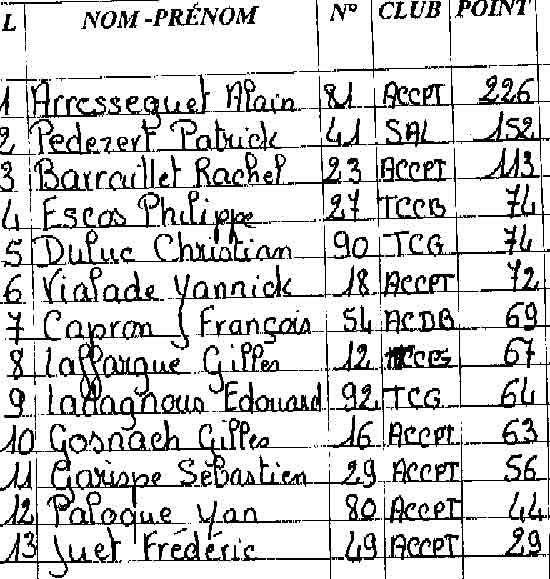 L NOM-PRÉNOM N° CLUB POINT
1 Arresseguet Alain 81 ACCPT 226
2 Pedezert Patrick 41 SAL 152
3 Barraillet Rachel 23 ACCPT 113
4 Escos Philippe 27 TCCB 74
5 Duluc Christian 90 TCG 74
6 Vialade Yannick 18 ACCPT 72
7 Capron J François 54 ACDB 69
8 Laffargue Gilles 12 67
9 Edouard 92 TCG 64
10 Gosnach Gilles 16 ACCPT 63
11 Garispe Sébastien 29 ACCPT 56
12 Paloque Yan 80 ACCPT 44
13 Juet Frédéric 49 ACCPT 29